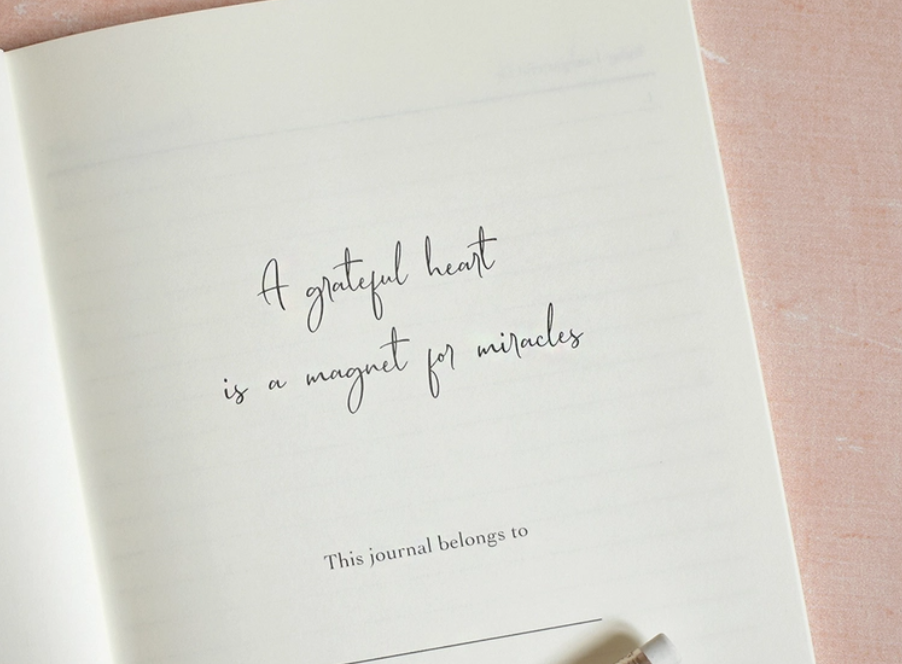 A grateful heart
is a magnet for miracles
This journal belongs to